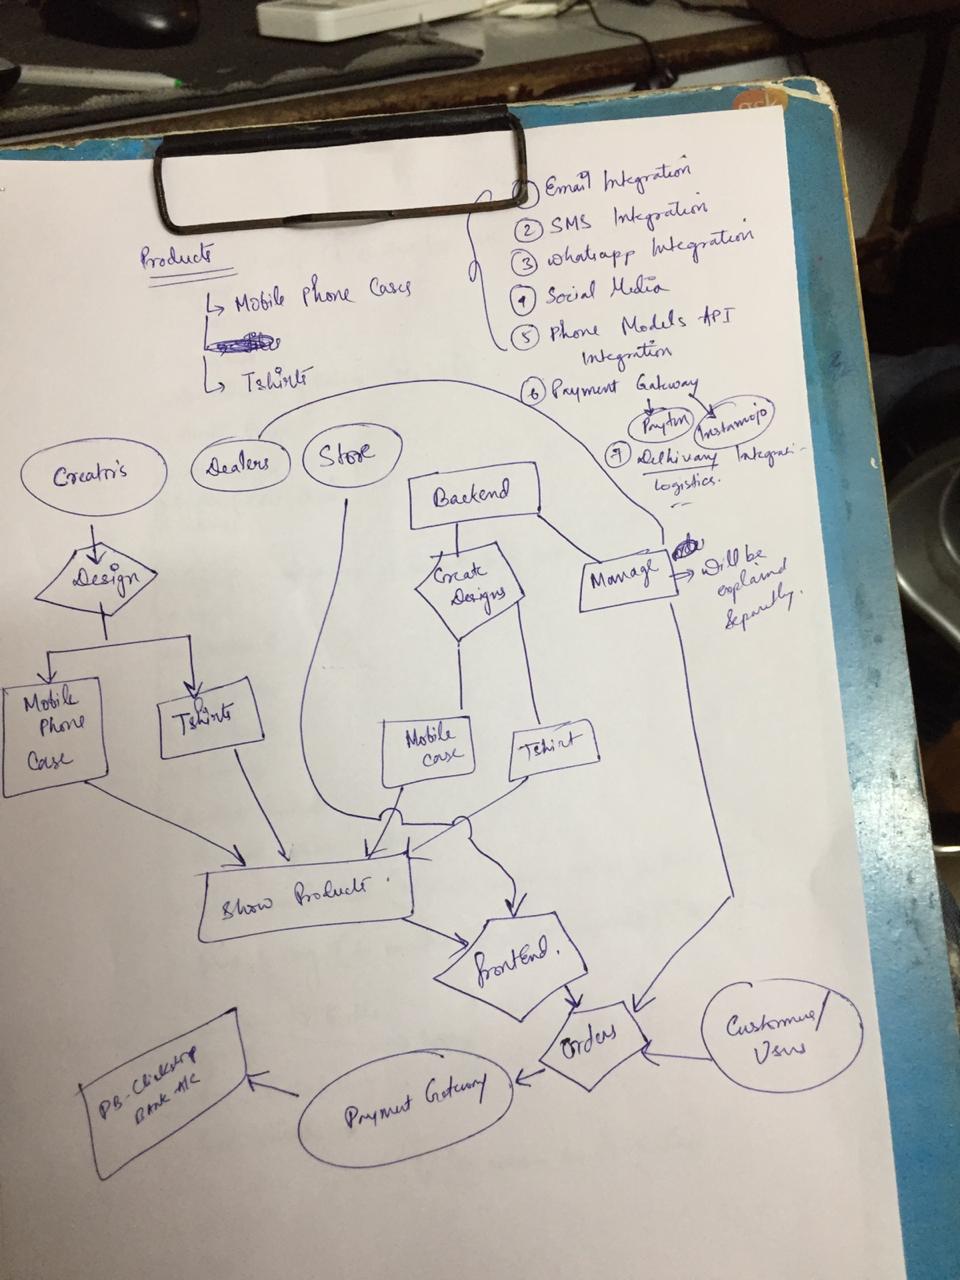 ask
Products
Mobile Phone Cases
Tshirts
① Email Integration
② SMS Integration
③ Whatsapp Integration
④ Social Media
⑤ Phone Models API
Integration
⑥ Payment Gateway
Paytm Instamojo
Delhivary
Logistics.
Creators
Dealers
Store
Backend
Design
Create
Designs
Manage
Will be
explained
Separatly.
Mobile
Phone
Case
Tshirts
Mobile
Case
Tshirt
Show Products
FrontEnd.
Orders
Payment Gateway
BANK A/C